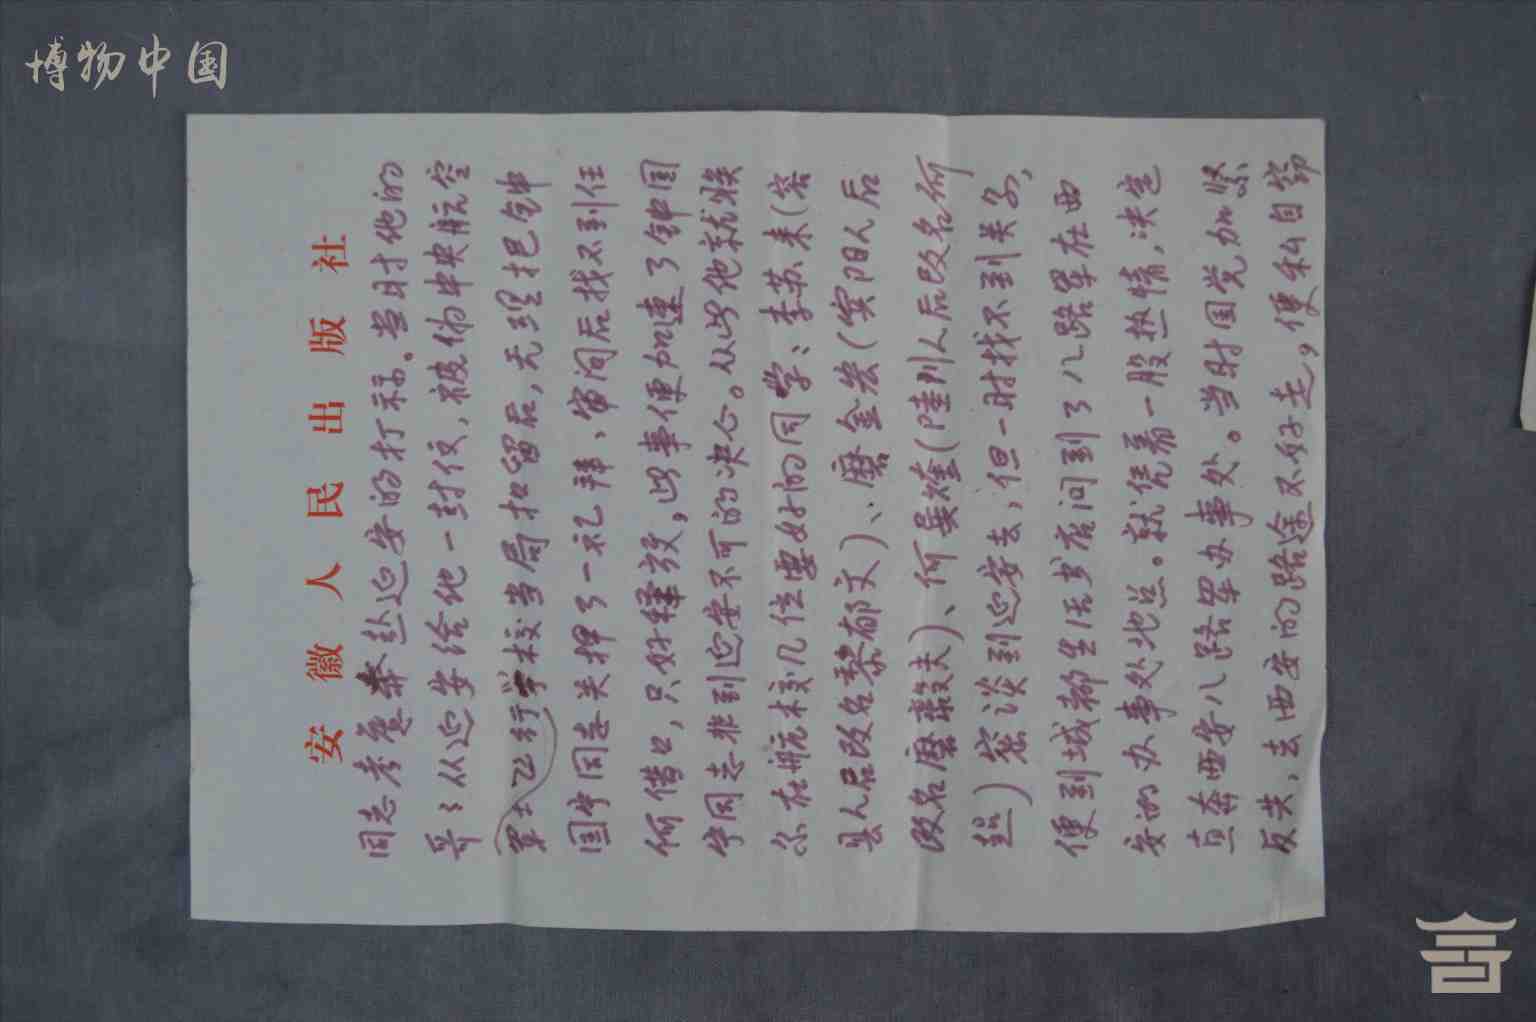 博物中国
安徽人民出版社
同志考虑奔赴延安的打算。当时他的
哥哥从延安给他一封信，被伪中央航空
军士飞行学校当局扣留后，无理把钟
国宁同志关押了一礼拜、审问后找不到任
何借口，只好释放，此事便加速了钟国
宁同志非到延安不可的决心。从此他就
在航校几位要好的同学：李苏来（容
县人后改名黎郁文）、磨金宏（宾阳人后
改名磨毅夫）、何（陆川人后改名何
）密谈到延安去，但一时找不到关系，
便到城郊生活书店问到了八路军在西
安的办事处地点。就凭着一股热情，决定
直奔西安八路军办事处。当时国党加紧
反共，去西安的路途不好走，便私自